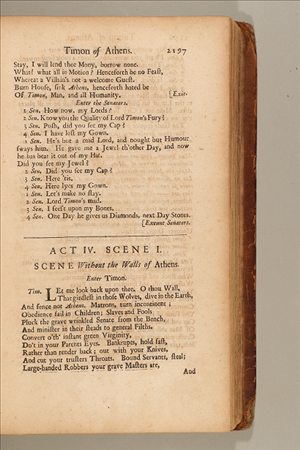 Timon of Athens. 2197
Stay, I will lend thee Mony, borrow none.
What! what all in Motion? Henceforth be no Feast,
Whereat a Villain's not a welcome Guest.
Burn House, sink Athens, henceforth hated be
Of Timon, Man, and all Humanity. [Exit.
Enter the Senators.
1 Sen. How now, my Lords?
2 Sen. Know you the Quality of Lord Timon's Fury?
3 Sen. Push, did you see my Cap?
4 Sen. I have lost my Gown.
1 Sen. He's but a mad Lord, and nought but Humour
sways him. He gave me a Jewel th'other Day, and now
he has beat it out of my Hat.
Did you see my Jewel?
2 Sen. Did you see my Cap?
3 Sen. Here 'tis.
4 Sen. Here lyes my Gown.
1 Sen. Let's make no stay.
2 Sen. Lord Timon's mad.
3 Sen. I feel't upon my Bones.
4 Sen. One Day he gives us Diamonds, next Day Stones.
[Exeunt Senators.
ACT IV. SCENE I.
SCENE Without the Walls of Athens.
Enter Timon.
Tim. LEt me look back upon thee, O thou Wall,
That girdlest in those Wolves, dive in the Earth,
And fence not Athens. Matrons, turn incontinent;
Obedience fail in Children; Slaves and Fools
Pluck the grave wrinkled Senate from the Bench,
And minister in their steads to general Filths.
Convert o'th' instant green Virginity,
Do't in your Parents Eyes. Bankrupts, hold fast,
Rather than render back; out with your Knives,
And cut your trusters Throats. Bound Servants, steal;
Large-handed Robbers your grave Masters are,
And